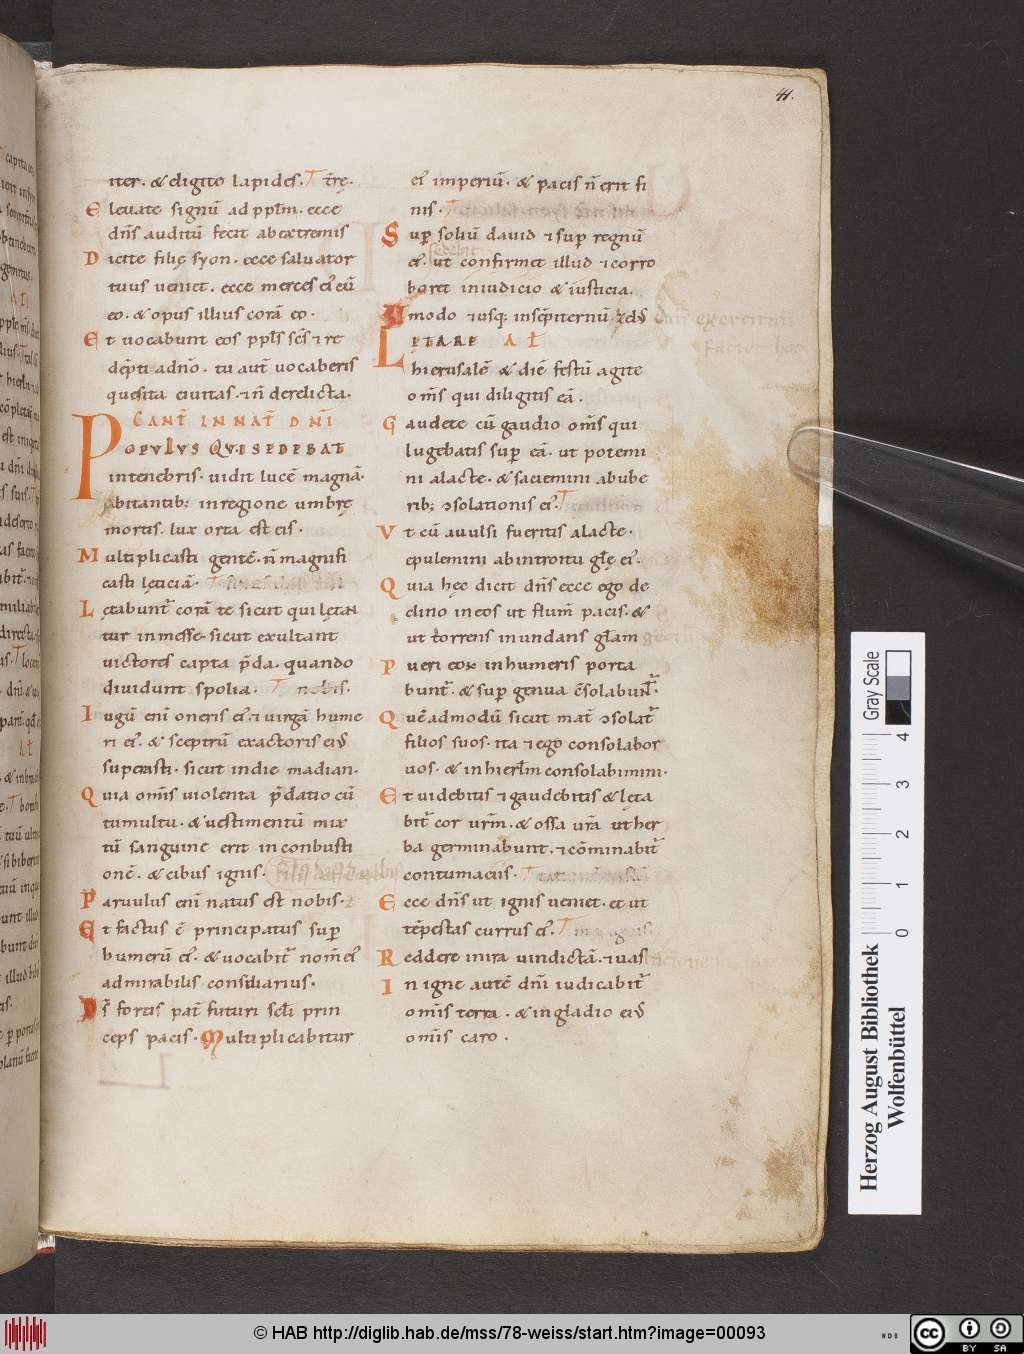 44.
iter· & eligite lapides· T tr̄ę·
Eleuate signū ad ppl̄m· ecce
dn̄s auditū fecit ab extremis
Dicite filię syon· ecce saluator
tuus ueniet· ecce merces ei' cū
eo· & opus illius corā eo·
Et uocabunt eos ppl̄s sc̄s ⁊ re
dēpti a dn̄o· tu aut̄ uocaberis
quesita ciuitas· ⁊ n̄ derelicta·
CANT̄ IN NAT̄ DN̄I
POPVLVS QVI SEDEBAT
in tenebris· uidit lucē magnā·
abitantib; in regione umbrę
mortis· lux orta est eis·
Multiplicasti gentē· n̄ magnifi
casti lęticiā· T
Lętabunt̄ corā te sicut qui lętan
tur in messe· sicut exultant
uictores capta p̄da· quando
diuidunt spolia· T nobis·
Iugū eni oneris ei' ⁊ uirgā hume
ri ei'· & sceptrū exactoris ei'
superasti· sicut in die madian·
Quia om̄is uiolenta p̄datio cū
tumultu· & uestimentū mix
tū sanguine erit in conbusti
onē· & cibus ignis·
Paruulus eni natus est nobis·
Et factus ē principatus sup
humerū ei'· & uocabit̄ nom̄ ei'
admirabilis consiliarius·
Ds̄ fortis pat̄ futuri sc̄li prin
ceps pacis· Multiplicabitur
ei' imperiū· & pacis n̄ erit fi
nis· T
Sup soliū dauid ⁊ sup regnū
ei'· ut confirmet illud ⁊ corro
boret in iudicio & iusticia·
Amodo ⁊ usq; in sēpiternū·
LETARE AL̄
hierusalē & diē festū agite
om̄s qui diligitis eā·
Gaudete cū gaudio om̄s qui
lugebatis sup eā· ut potemi
ni a lacte· & saciemini ab ube
rib; ↄsolationis ei'· T
Vt cū auulsi fueritis a lacte·
epulemini ab introitu glę ei'·
Quia hęc dicit dn̄s ecce ego de
clino in eos ut flum̄ pacis· &
ut torrens inundans glam
Pueri eox in humeris porta
bunt̄· & sup genua ↄsolabunt̄·
Quēadmodū sicut mat̄ ↄsolat̄
filios suos· ita ⁊ ego consolabor
uos· & in hierl̄m consolabimini·
Et uidebitis ⁊ gaudebitis & lęta
bit̄ cor ur̄m· & ossa ur̄a ut her
ba germinabunt· ⁊ cōminabit̄
contumaciis· T
Ecce dn̄s ut ignis ueniet· et ut
tēpestas currus ei'· T
Reddere in ira uindictā· ⁊ uas
In igne autē dn̄i iudicabit̄
om̄is terra· & in gladio ei'
om̄is caro·
Gray Scale
0 1 2 3 4
Herzog August Bibliothek
Wolfenbüttel
© HAB http://diglib.hab.de/mss/78-weiss/start.htm?image=00093
cc BY SA